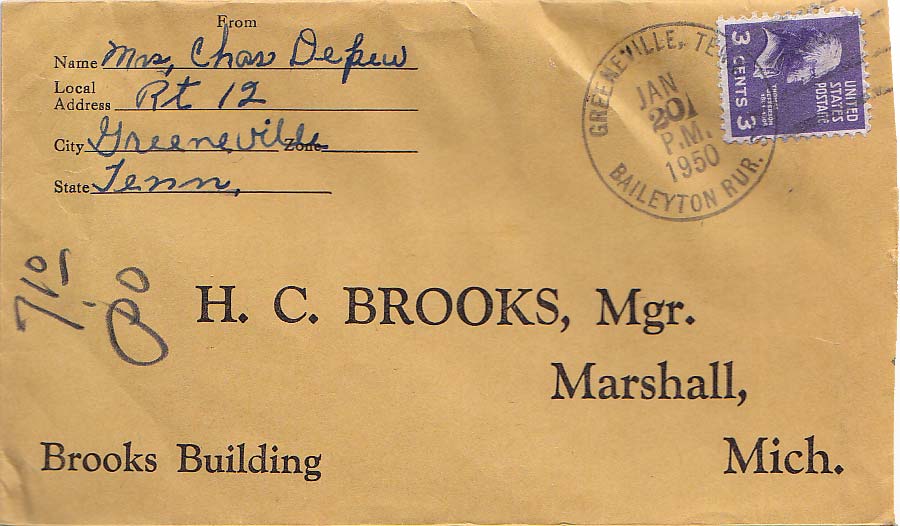 From
Name Mrs, Chas Depew
Local
Address Rt 12
City Greeneville Zone
State Tenn,
GREENEVILLE, TEN
JAN
20
P.M.
1950
BAILEYTON RUR. S
3 CENTS 3
UNITED
STATES
POSTAGE
H. C. BROOKS, Mgr.
Marshall,
Brooks Building Mich.